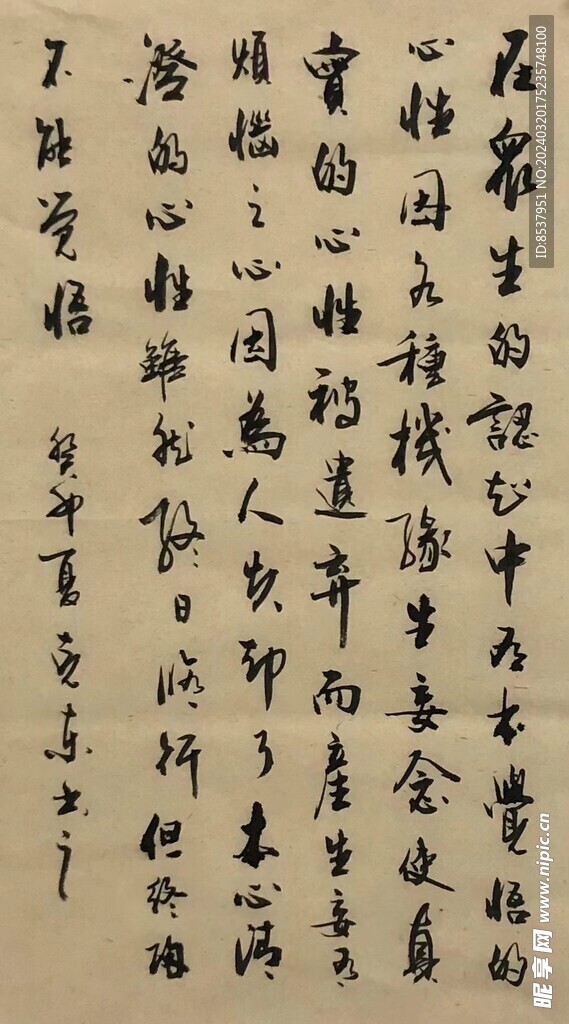 在衆生的認知中有本覺悟的
心性因各種機緣生妄念使真
實的心性被遺弃而產生妄有
煩惱之心因為人失却了本心清
澄的心性雖然終日修行但終難
不能觉悟
癸卯夏克东书之
ID:8537951 NO:20240320175235748100
昵享网 www.nipic.cn